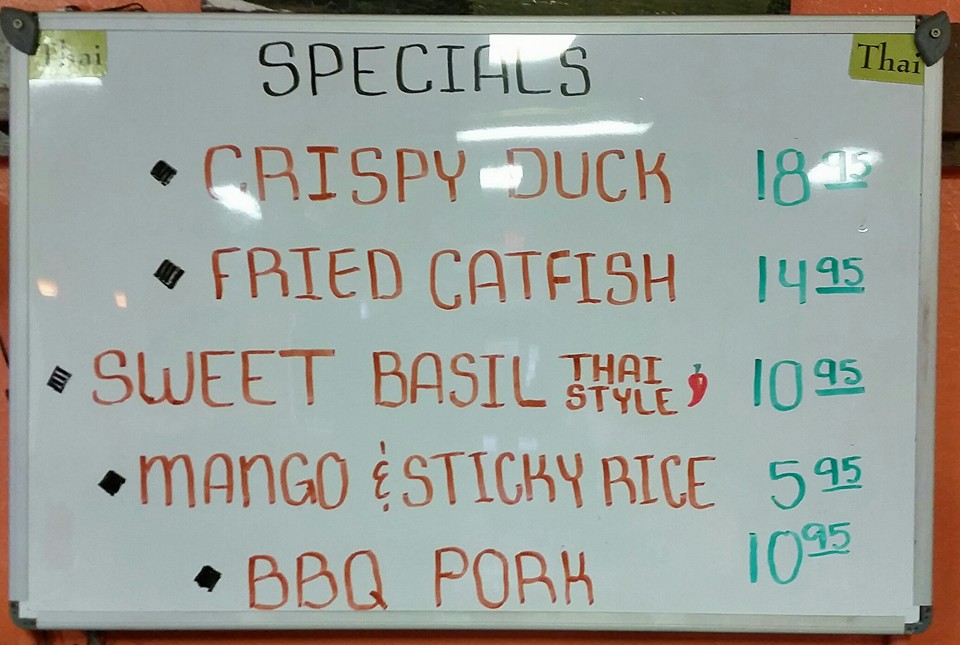 Thai
Thai
SPECIALS
CRISPY DUCK 18 95
FRIED CATFISH 14 95
SWEET BASIL THAI STYLE 10 95
MANGO & STICKY RICE 5 95
BBQ PORK 10 95